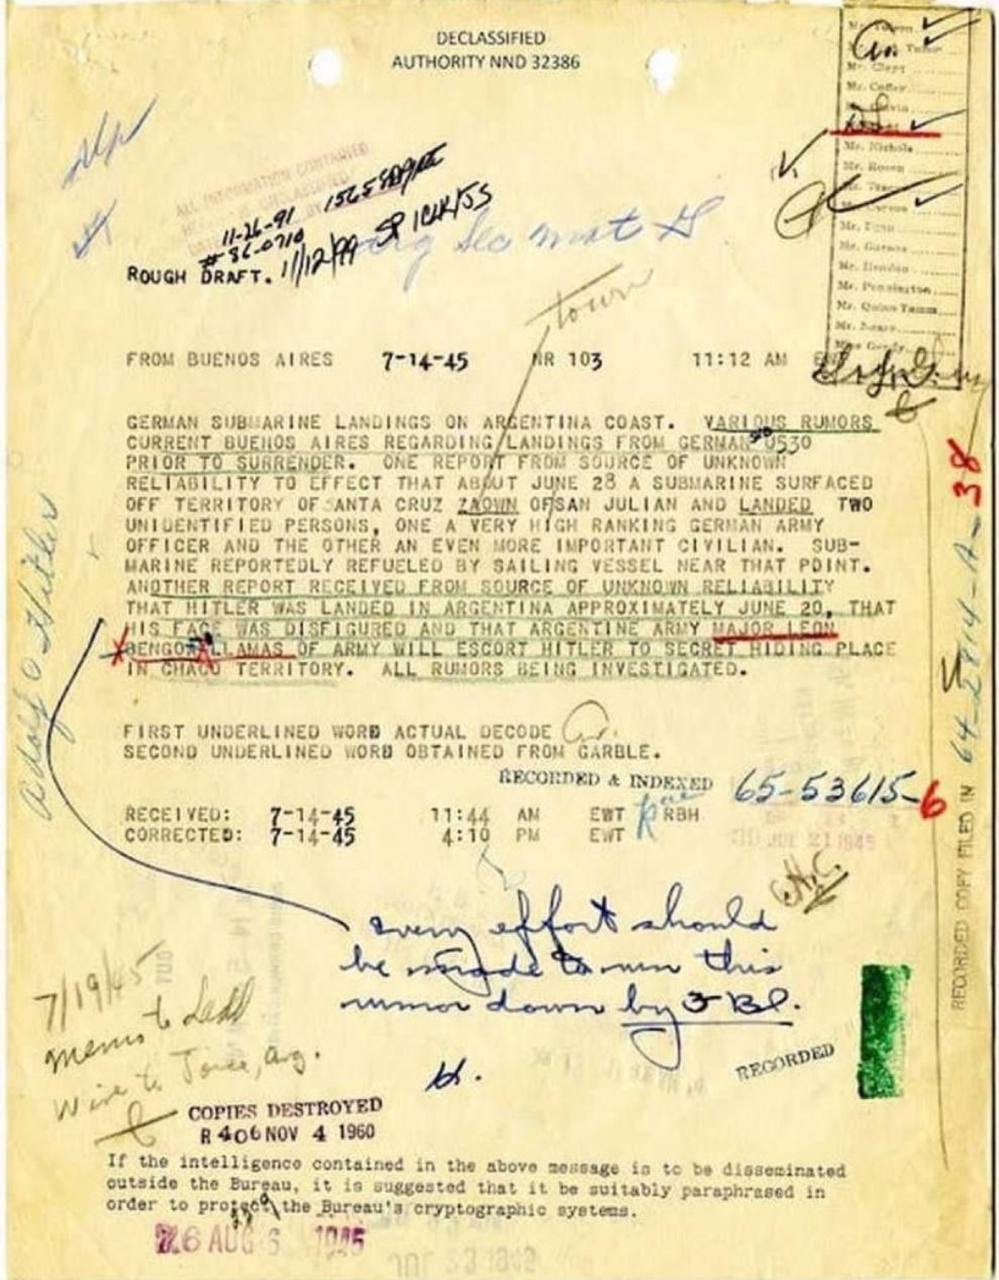 DECLASSIFIED
AUTHORITY NND 32386
Mr. Coffey
Mr. Nichols
Mr. Rosen
Mr. Carson
Mr. Egan
Mr. Hendon
Mr. Pennington
Mr. Quinn Tamm
Mr. Nease
Miss Gandy
ALL INFORMATION CONTAINED
11-26-91
#86-0710
11/12/99
ROUGH DRAFT.
town
FROM BUENOS AIRES 7-14-45 NR 103 11:12 AM
GERMAN SUBMARINE LANDINGS ON ARGENTINA COAST. VARIOUS RUMORS
CURRENT BUENOS AIRES REGARDING LANDINGS FROM GERMAN U530
PRIOR TO SURRENDER. ONE REPORT FROM SOURCE OF UNKNOWN
RELIABILITY TO EFFECT THAT ABOUT JUNE 28 A SUBMARINE SURFACED
OFF TERRITORY OF SANTA CRUZ ZAOWN OF SAN JULIAN AND LANDED TWO
UNIDENTIFIED PERSONS, ONE A VERY HIGH RANKING GERMAN ARMY
OFFICER AND THE OTHER AN EVEN MORE IMPORTANT CIVILIAN. SUB-
MARINE REPORTEDLY REFUELED BY SAILING VESSEL NEAR THAT POINT.
ANOTHER REPORT RECEIVED FROM SOURCE OF UNKNOWN RELIABILITY
THAT HITLER WAS LANDED IN ARGENTINA APPROXIMATELY JUNE 20, THAT
HIS FACE WAS DISFIGURED AND THAT ARGENTINE ARMY MAJOR LEON
LLAMAS OF ARMY WILL ESCORT HITLER TO SECRET HIDING PLACE
IN CHACO TERRITORY. ALL RUMORS BEING INVESTIGATED.
Adolf Hitler
FIRST UNDERLINED WORD ACTUAL DECODE
SECOND UNDERLINED WORD OBTAINED FROM GARBLE.
RECORDED & INDEXED 65-53615-6
RECEIVED: 7-14-45 11:44 AM EWT RBH
CORRECTED: 7-14-45 4:10 PM EWT
JUL 21 1945
RECORDED COPY FILED IN 64-2814-A-38
every effort should
be made to run this
rumor down by
H.
7/19/45
memo to Ladd
Wire to Arg.
RECORDED
COPIES DESTROYED
R 406 NOV 4 1960
If the intelligence contained in the above message is to be disseminated
outside the Bureau, it is suggested that it be suitably paraphrased in
order to protect the Bureau's cryptographic systems.
AUG 6 1945